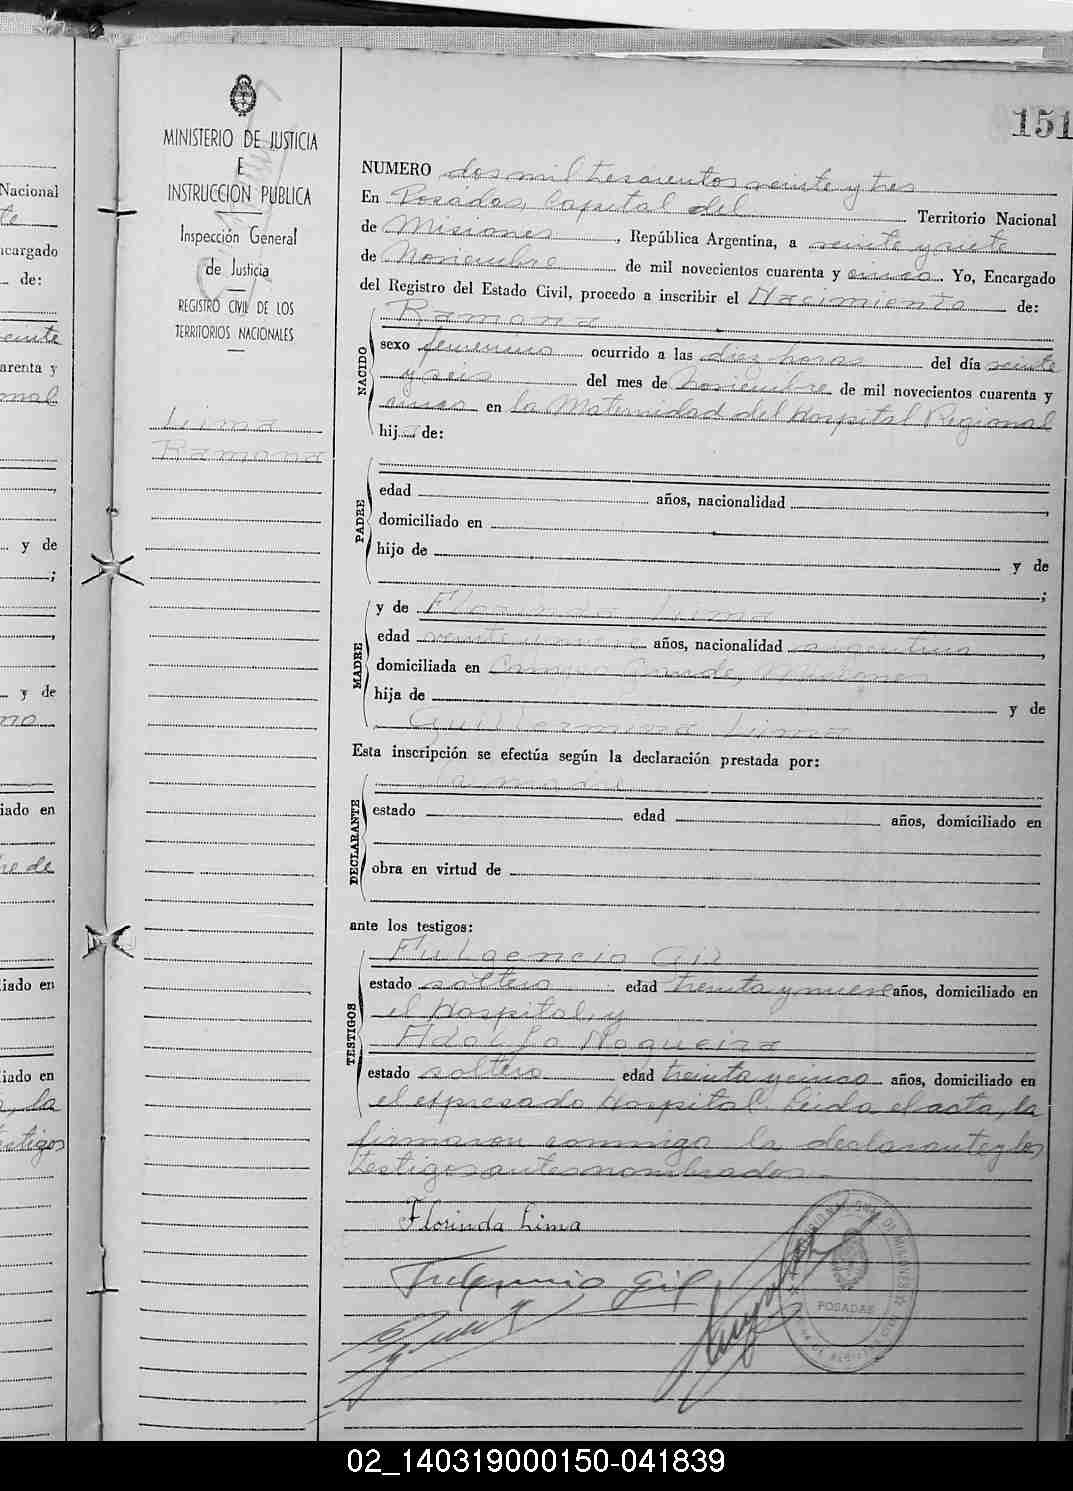 151
MINISTERIO DE JUSTICIA
E
INSTRUCCION PUBLICA
Inspección General
de Justicia
REGISTRO CIVIL DE LOS
TERRITORIOS NACIONALES
Lima
Ramona
NUMERO dos mil trescientos veinte y tres
En Posadas, Capital del Territorio Nacional
de Misiones, República Argentina, a veinte y siete
de Noviembre de mil novecientos cuarenta y cinco Yo, Encargado
del Registro del Estado Civil, procedo a inscribir el Nacimiento de:
NACIDO
Ramona
sexo femenino ocurrido a las diez horas del día veinte
y seis del mes de Noviembre de mil novecientos cuarenta y
cinco en la Maternidad del Hospital Regional
hija de:
PADRE
edad años, nacionalidad ,
domiciliado en
hijo de y de
;
MADRE
y de Florinda Lima
edad veinte y nueve años, nacionalidad argentina,
domiciliada en Campo Grande, Misiones
hija de y de
Guillermina Lima
Esta inscripción se efectúa según la declaración prestada por:
DECLARANTE
la madre
estado edad años, domiciliado en
obra en virtud de
ante los testigos:
TESTIGOS
Fulgencio Gil
estado soltero edad treinta y nueve años, domiciliado en
el Hospital, y
Adolfo Nogueira
estado soltero edad treinta y cinco años, domiciliado en
el expresado Hospital. Leida el acta, la
firmaron conmigo la declarante y los
testigos antes nombrados.-
Florinda Lima
Fulgencio Gil
POSADAS
Nacional
te
ncargado
de:
veinte
arenta y
onal
y de
;
y de
iado en
re de
iado en
iado en
la
testigos
02_140319000150-041839